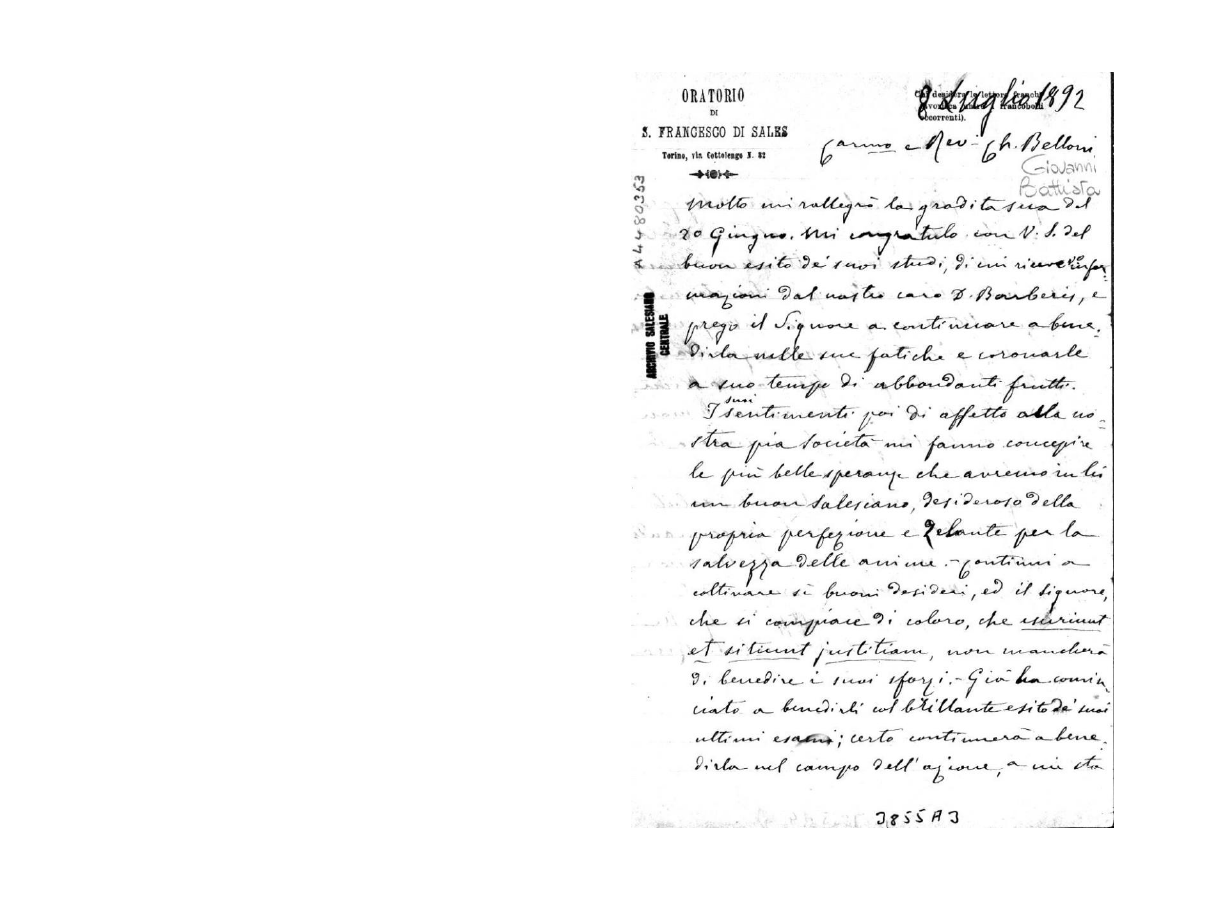 ORATORIO
DI
S. FRANCESCO DI SALES
Torino, via Cottolengo N. 32
8 Luglio 1892
Carmo e Rev. Ch. Belloni
Giovanni
Battista
A4480353
ARCHIVIO SALESIANO
CENTRALE
Molto mi rallegrò la gradita sua del
20 Giugno. Mi congratulo con V. S. del
buon esito de' suoi studi, di cui ricevo infor
mazioni dal nostro caro D. Barberis, e
prego il Signore a continuare a bene-
dirla nelle sue fatiche e coronarle
a suo tempo di abbondanti frutti.
I suoi sentimenti poi di affetto alla no-
stra pia società mi fanno concepire
le più belle speranze che avremo in lei
un buon Salesiano, desideroso della
propria perfezione e zelante per la
salvezza delle anime. - Continui a
coltivare sì buoni desideri, ed il Signore,
che si compiace di coloro, che esuriunt
et sitiunt justitiam, non mancherà
di benedire i suoi sforzi. - Già ha comin
ciato a benedirli col brillante esito de' suoi
ultimi esami; certo continuerà a bene-
dirla nel campo dell'azione, a cui sta
3855A3